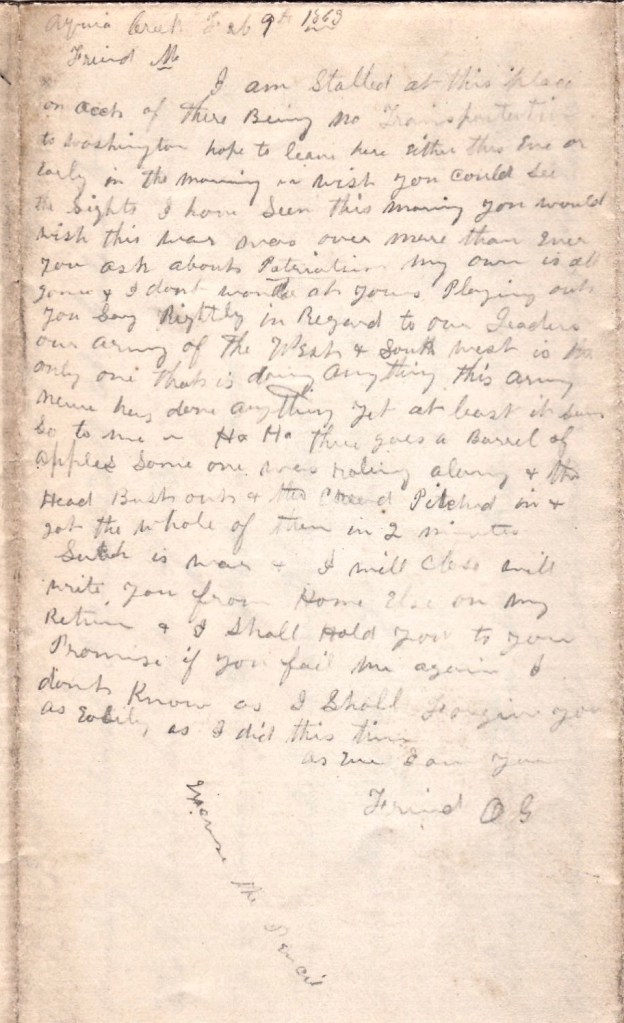 Aquia Creek Feb 9th 1863
Friend M
I am Stalled at this place
on acct of there Being no Transportation
to Washington hope to leave here Either this Eve or
Early in the morning wish you could See
the Sights I have Seen this morning you would
wish this war was over more than Ever
you ask about Patriotism my own is all
gone & I dont wonder at yours Playing out
you Say Rightly in Regard to our Leaders
our army of the West & South west is the
only one that is doing anything this army
never has done anything yet at least it Seems
So to me Ha Ha there goes a Barrel of
apples Some one was roling along & the
Head Bust out & the Croud Pitched in &
got the whole of them in 2 minutes
Such is war & I will Close will
write you from Home Else on my
Return & I Shall Hold you to your
Promise if you fail me again I
dont Know as I Shall Forgive you
as Easily as I did this time
as Ever I am your
Friend O G
Excuse the Pencil